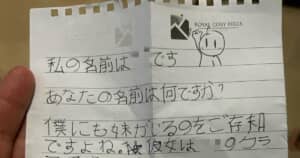 ROYAL COSY HILLS
私の名前は です
あなたの名前は何ですか?
僕にも妹がいるのをご存知
ですよね。彼女は 9クラ